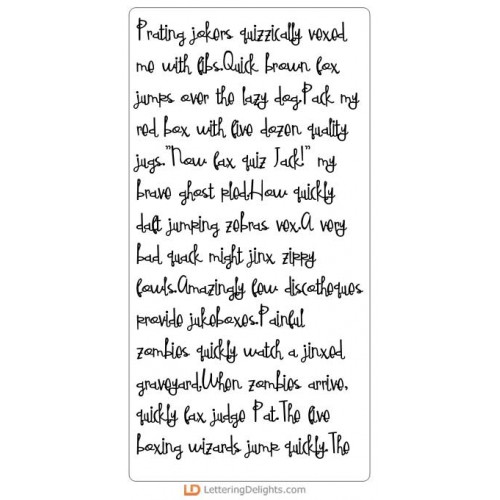 Prating jokers quizzically vexed
me with fibs.Quick brown fox
jumps over the lazy dog.Pack my
red box with five dozen quality
jugs."Now fax quiz Jack!" my
brave ghost pled.How quickly
daft jumping zebras vex.A very
bad quack might jinx zippy
fowls.Amazingly few discotheques
provide jukeboxes.Painful
zombies quickly watch a jinxed
graveyard.When zombies arrive,
quickly fax judge Pat.The five
boxing wizards jump quickly.The
LD LetteringDelights.com